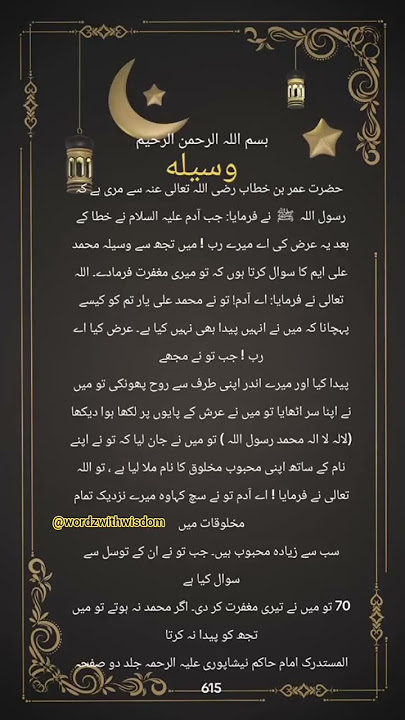 بسم اللہ الرحمن الرحیم
وسیلہ
حضرت عمر بن خطاب رضی اللہ تعالی عنہ سے مری ہے کہ
رسول اللہ ﷺ نے فرمایا: جب آدم علیہ السلام نے خطا کے
بعد یہ عرض کی اے میرے رب ! میں تجھ سے وسیلہ محمد
علی ایم کا سوال کرتا ہوں کہ تو میری مغفرت فرمادے۔ اللہ
تعالی نے فرمایا: اے آدم! تو نے محمد علی یار تم کو کیسے
پہچانا کہ میں نے انہیں پیدا بھی نہیں کیا ہے۔ عرض کیا اے
رب ! جب تو نے مجھے
پیدا کیا اور میرے اندر اپنی طرف سے روح پھونکی تو میں
نے اپنا سر اٹھایا تو میں نے عرش کے پایوں پر لکھا ہوا دیکھا
(لالہ لا الہ محمد رسول اللہ ) تو میں نے جان لیا کہ تو نے اپنے
نام کے ساتھ اپنی محبوب مخلوق کا نام ملا لیا ہے ، تو اللہ
تعالی نے فرمایا ! اے آدم تو نے سچ کہاوہ میرے نزدیک تمام
مخلوقات میں
@wordzwithwisdom
سب سے زیادہ محبوب ہیں۔ جب تو نے ان کے توسل سے
سوال کیا ہے
70 تو میں نے تیری مغفرت کر دی۔ اگر محمد نہ ہوتے تو میں
تجھ کو پیدا نہ کرتا
المستدرک امام حاکم نیشاپوری علیہ الرحمہ جلد دو صفحہ
615